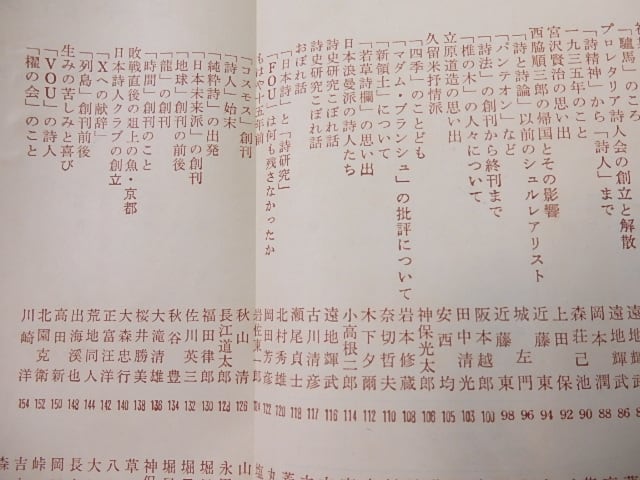 「驢馬」のころ
プロレタリア詩人会の創立と解散 遠地輝武
「詩精神」から「詩人」まで 遠地輝武 86
一九三五年のこと 岡本潤 88
宮沢賢治の思い出 森荘已池 90
西脇順三郎の帰国とその影響 上田保 92
「詩と詩論」以前のシュルレアリスト 近藤東 94
「パンテオン」など 城左門 96
「詩法」の創刊から終刊まで 近藤東 98
「椎の木」の人々について 阪本越郎 100
立原道造の思い出 田中清光 103
久留米抒情派 安西均 105
「四季」のことども 神保光太郎 106
「マダム・ブランシュ」の批評について 岩本修蔵 108
「新領土」について 奈切哲夫 110
「若草詩欄」の思い出 木下夕爾 112
日本浪曼派の詩人たち 小高根二郎 114
詩史研究こぼれ話 遠地輝武 116
詩史研究こぼれ話 古川清彦 117
おぼれ話 瀬尾貞士 118
「日本詩」と「詩研究」 北村秀雄 120
「FOU」は何も残さなかったか 岡田芳彦 122
もはや十五年前 岩佐東一郎 124
「コスモス」創刊 秋山清 126
「詩人」始末 長江道太郎 128
「純粋詩」の出発 福田律郎 130
「日本未来派」の創刊 佐川英三 132
「地球」創刊の前後 秋谷豊 134
「龍」の創刊 大滝清雄 136
「時間」創刊のこと 桜井勝美 138
敗戦直後の俎上の魚・京都 大森忠行 140
日本詩人クラブの創立 正富汪洋 142
「Xへの献辞」 荒地同人 144
「列島」創刊前後 出海溪也 148
生みの苦しみと喜び 高田新 150
「VOU」の詩人 北園克衛 152
「櫂の会」のこと 川崎洋 154